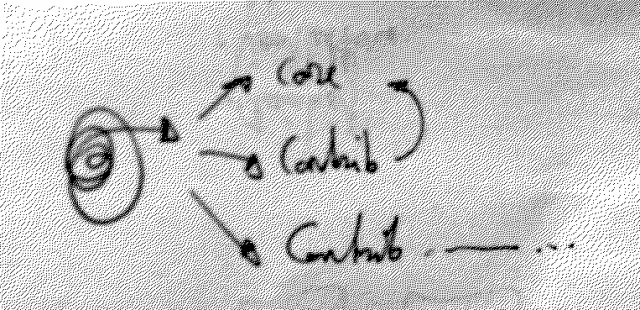 Core
Contrib
Contrib